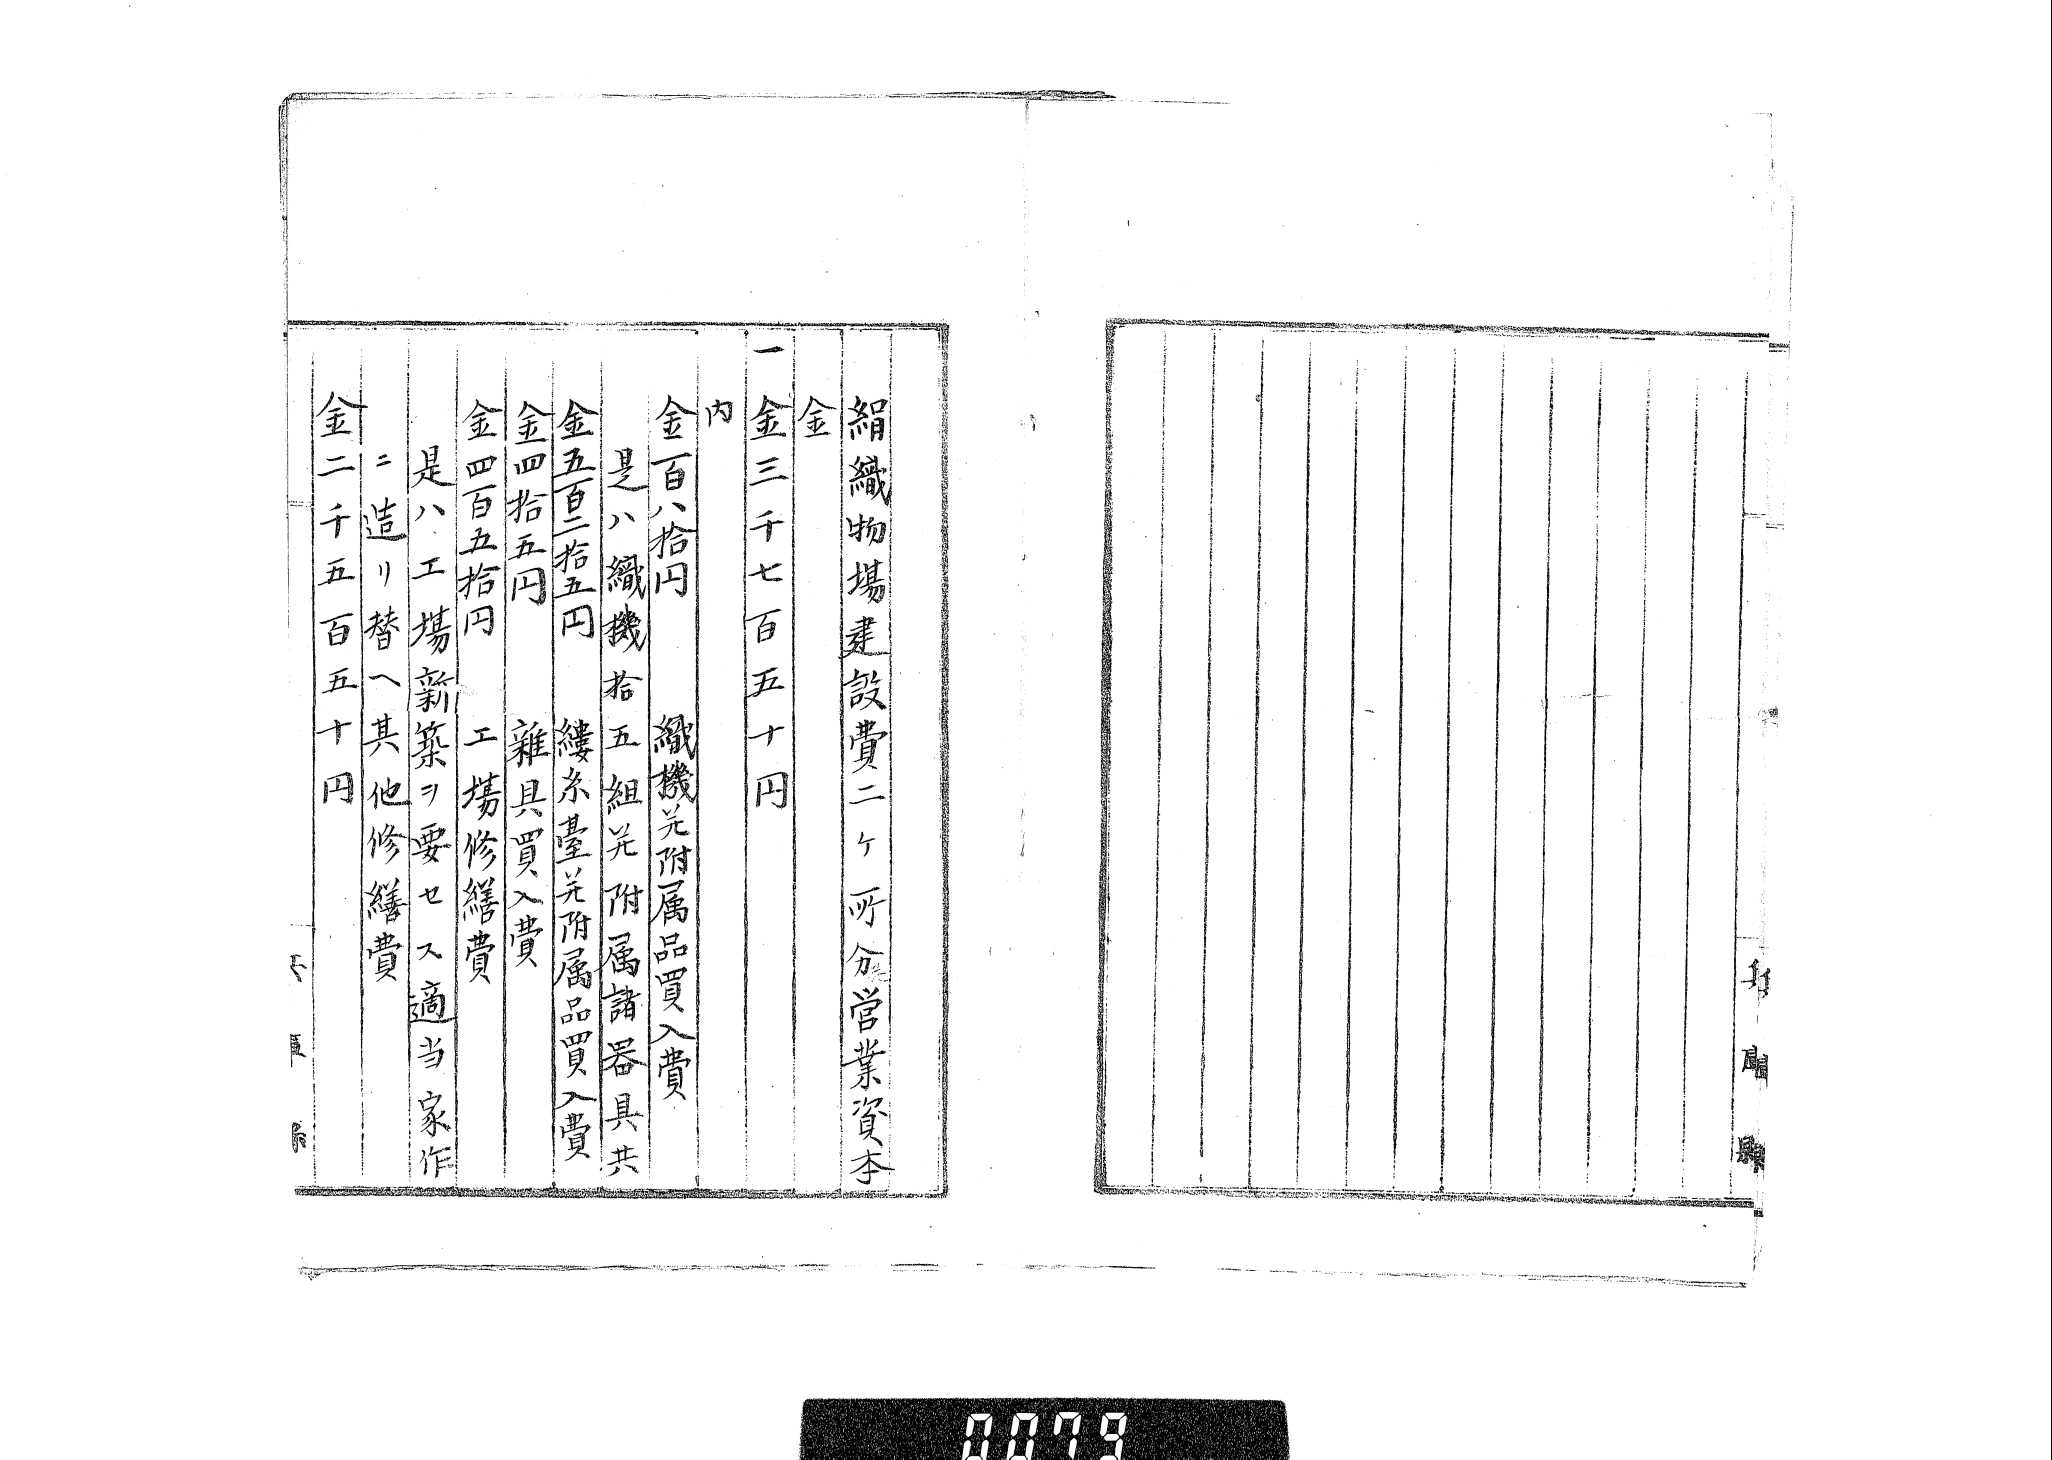 兵庫縣
絹織物場建設費二ケ所分営業資本
金
一金三千七百五十円
内
金百八拾円 織機並附属品買入費
是ハ織機拾五組並附属諸器具共
金五百二拾五円 縷糸臺並附属品買入費
金四拾五円 雑具買入費
金四百五拾円 工場修繕費
是ハ工場新築ヲ要セス適当家作
ニ造リ替ヘ其他修繕費
金二千五百五十円
0079